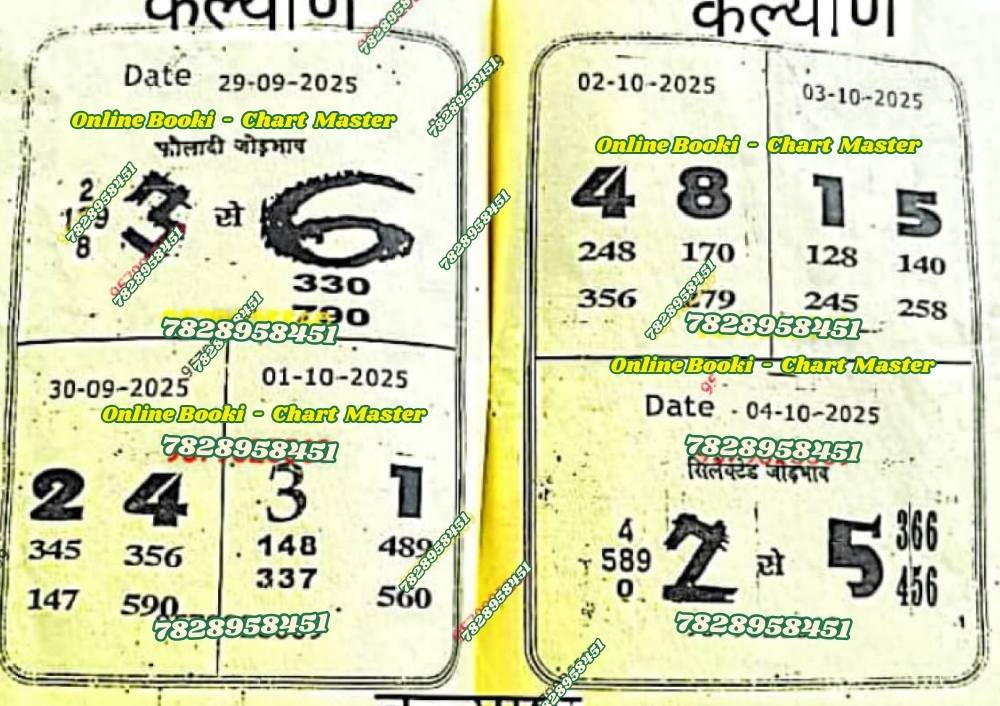 कल्याण
Date 29-09-2025
Online Booki - Chart Master
फौलादी जोड़भाव
2
8
3 से 6
330
790
7828958451
7828958451
7828958451
7828958451
30-09-2025
01-10-2025
Online Booki - Chart Master
7828958451
2 4
345 356
147 590
3 1
148 489
337 560
7828958451
7828958451
7828958451
7828958451
7828958451
कल्याण
02-10-2025
03-10-2025
Online Booki - Chart Master
4 8
248 170
356 279
1 5
128 140
245 258
7828958451
7828958451
Online Booki - Chart Master
Date - 04-10-2025
7828958451
सिलेक्टेड जोड़भाव
4
589
0
2 से 5
366
456
7828958451
7828958451